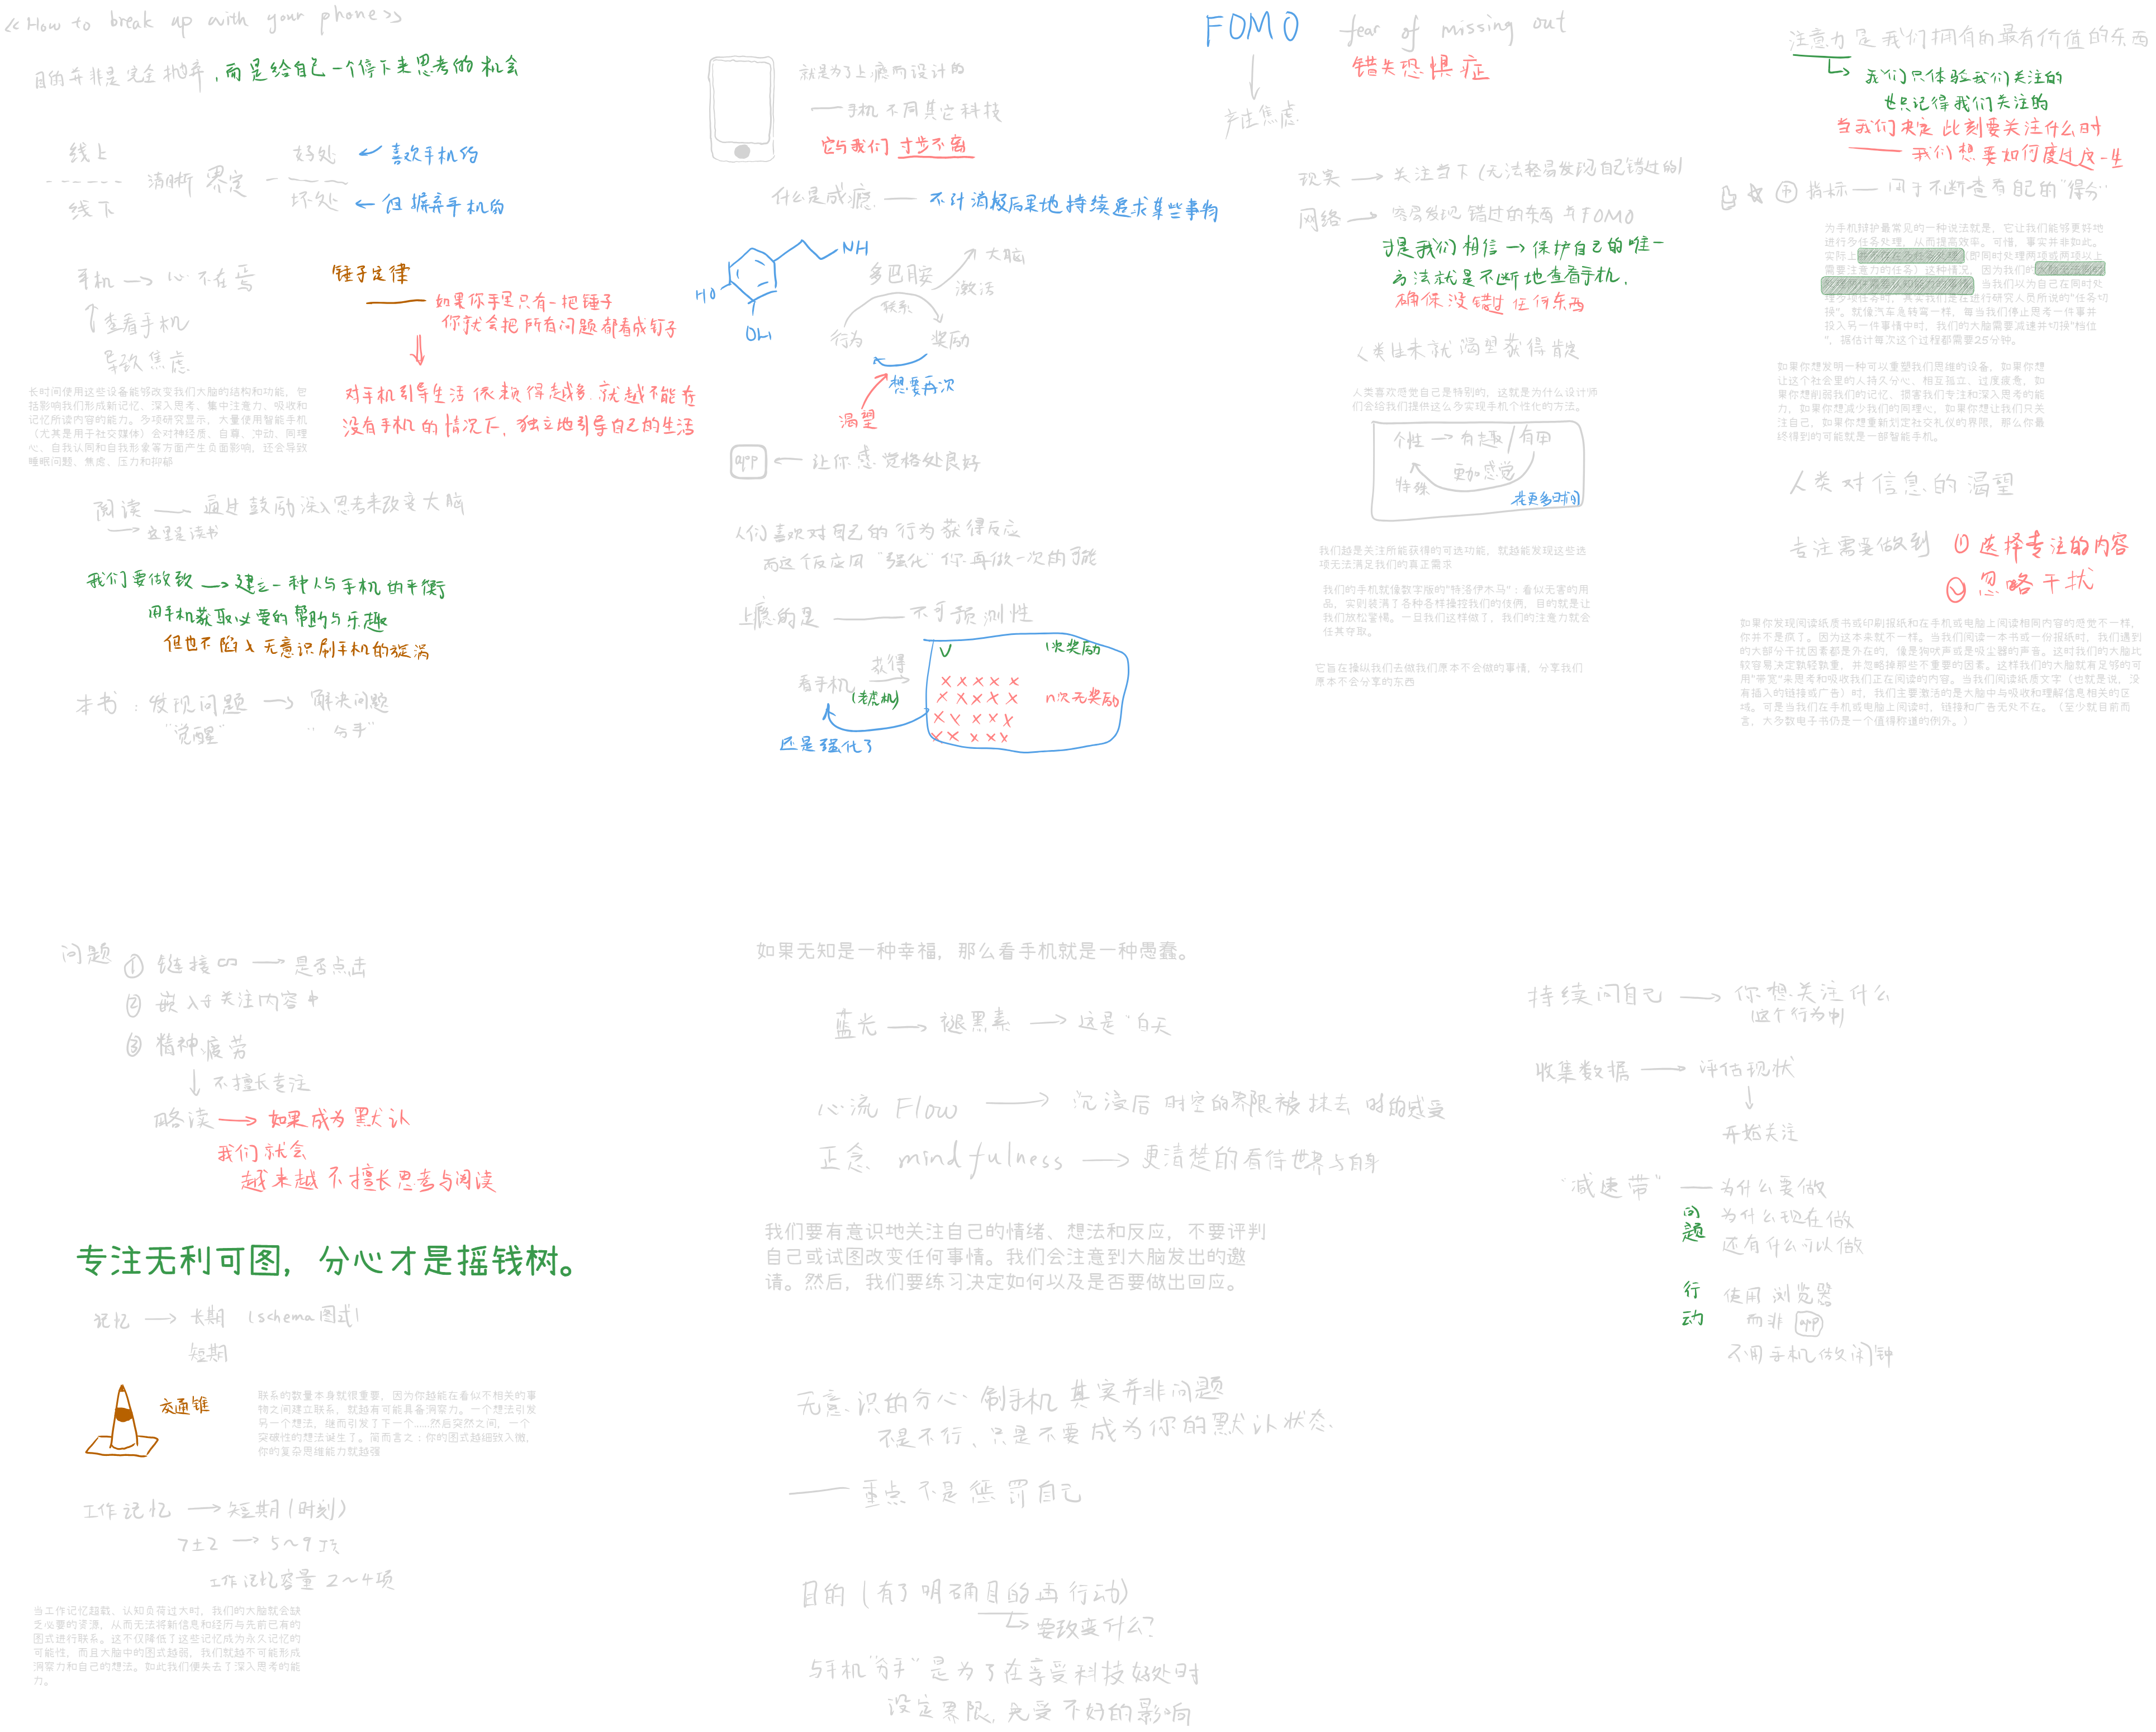 <<How to break up with your phone>>
目的并非是完全抛弃，而是给自己一个停下来思考的机会
线上
线下
清晰 界定
好处
坏处
喜欢手机的
但摒弃手机的
手机 → 心不在焉
查看手机
导致焦虑
锤子定律
如果你手里只有一把锤子
你就会把所有问题都看成钉子
对手机引导生活依赖得越多，就越不能在
没有手机的情况下，独立地引导自己的生活
长时间使用这些设备能够改变我们大脑的结构和功能，包
括影响我们形成新记忆、深入思考、集中注意力、吸收和
记忆所读内容的能力。多项研究显示，大量使用智能手机
（尤其是用于社交媒体）会对神经质、自尊、冲动、同理
心、自我认同和自我形象等方面产生负面影响，还会导致
睡眠问题、焦虑、压力和抑郁
阅读 —— 通过鼓励深入思考来改变大脑
→ 这里是读书
我们要做致 → 建立一种人与手机的平衡
用手机获取必要的帮助与乐趣
但也不陷入无意识刷手机的旋涡
本书：发现问题 → 解决问题
“觉醒” “分手”
就是为了上瘾而设计的
—— 手机不同其它科技
它与我们寸步不离
什么是成瘾 —— 不计消极后果地持续追求某些事物
NH
HO
OH
多巴胺
大脑
激活
联系
行为
奖励
想要再次
渴望
app ← 让你感觉格处良好
人们喜欢对自己的行为获得反应
而这个反应因“强化”你再做一次的可能
上瘾的是 —— 不可预测性
看手机
获得
(老虎机)
1次奖励
n次无奖励
还是强化了
FOMO fear of missing out
错失恐惧症
产生焦虑
现实 → 关注当下（无法轻易发现自己错过的）
网络 → 容易发现错过的东西 并FOMO
于是我们相信 → 保护自己的唯一
方法就是不断地查看手机，
确保没错过任何东西
人类生来就渴望获得肯定
人类喜欢感觉自己是特别的，这就是为什么设计师
们会给我们提供这么多实现手机个性化的方法。
个性 → 有趣/有用
特殊
更加感觉
花更多时间
我们越是关注所能获得的可选功能，就越能发现这些选
项无法满足我们的真正需求
我们的手机就像数字版的“特洛伊木马”：看似无害的用
品，实则装满了各种各样操控我们的伎俩，目的就是让
我们放松警惕。一旦我们这样做了，我们的注意力就会
任其夺取。
它旨在操纵我们去做我们原本不会做的事情，分享我们
原本不会分享的东西
注意力是我们拥有的最有价值的东西
我们只体验我们关注的
也只记得我们关注的
当我们决定此刻要关注什么时
—— 我们想要如何度过这一生
指标 —— 用于不断查看自己的“得分”
为手机辩护最常见的一种说法就是，它让我们能够更好地
进行多任务处理，从而提高效率。可惜，事实并非如此。
实际上并不存在多任务处理（即同时处理两项或两项以上
需要注意力的任务）这种情况，因为我们的大脑无法同时
处理两件需要认知能力的事情。当我们以为自己在同时处
理多项任务时，其实我们是在进行研究人员所说的“任务切
换”。就像汽车急转弯一样，每当我们停止思考一件事并
投入另一件事情中时，我们的大脑需要减速并切换“档位
”，据估计每次这个过程都需要25分钟。
如果你想发明一种可以重塑我们思维的设备，如果你想
让这个社会里的人持久分心、相互孤立、过度疲惫，如
果你想削弱我们的记忆，损害我们专注和深入思考的能
力，如果你想减少我们的同理心，如果你想让我们只关
注自己，如果你想重新划定社交礼仪的界限，那么你最
终得到的可能就是一部智能手机。
人类对信息的渴望
专注需要做到 ① 选择专注的内容
② 忽略干扰
如果你发现阅读纸质书或印刷报纸和在手机或电脑上阅读相同内容的感觉不一样，
你并不是疯了。因为这本来就不一样。当我们阅读一本书或一份报纸时，我们遇到
的大部分干扰因素都是外在的，像是狗吠声或是吸尘器的声音。这时我们的大脑比
较容易决定孰轻孰重，并忽略掉那些不重要的因素。这样我们的大脑就有足够的可
用“带宽”来思考和吸收我们正在阅读的内容。当我们阅读纸质文字（也就是说，没
有插入的链接或广告）时，我们主要激活的是大脑中与吸收和理解信息相关的区
域。可是当我们在手机或电脑上阅读时，链接和广告无处不在。（至少就目前而
言，大多数电子书仍是一个值得称道的例外。）
问题 ① 链接 → 是否点击
② 嵌入于关注内容中
③ 精神疲劳
↓ 不擅长专注
略读 → 如果成为默认
我们就会
越来越不擅长思考与阅读
专注无利可图，分心才是摇钱树。
记忆 → 长期（schema图式）
短期
交通锥
联系的数量本身就很重要，因为你越能在看似不相关的事
物之间建立联系，就越有可能具备洞察力。一个想法引发
另一个想法，继而引发了下一个……然后突然之间，一个
突破性的想法诞生了。简而言之：你的图式越细致入微，
你的复杂思维能力就越强
工作记忆 → 短期（时刻）
7±2 → 5~9项
工作记忆容量 2~4项
当工作记忆超载、认知负荷过大时，我们的大脑就会缺
乏必要的资源，从而无法将新信息和经历与先前已有的
图式进行联系。这不仅降低了这些记忆成为永久记忆的
可能性，而且大脑中的图式越弱，我们就越不可能形成
洞察力和自己的想法。如此我们便失去了深入思考的能
力。
如果无知是一种幸福，那么看手机就是一种愚蠢。
蓝光 → 褪黑素 → 这是“白天
心流 Flow → 沉浸后 时空的界限被抹去 时的感受
正念 mindfulness → 更清楚的看待世界与自身
我们要有意识地关注自己的情绪、想法和反应，不要评判
自己或试图改变任何事情。我们会注意到大脑发出的邀
请。然后，我们要练习决定如何以及是否要做出回应。
无意识的分心 刷手机 其实并非问题
不是不行、只是不要成为你的默认状态
—— 重点不是惩罚自己
目的（有了明确目的再行动）
要改变什么？
与手机“分手”是为了在享受科技好处时
设定界限，免受不好的影响
持续问自己 → 你想关注什么
(这个行为中)
收集数据 → 评估现状
开始关注
“减速带” —— 为什么要做
问题
为什么现在做
还有什么可以做
行动
使用 浏览器
而非 app
不用手机做闹钟